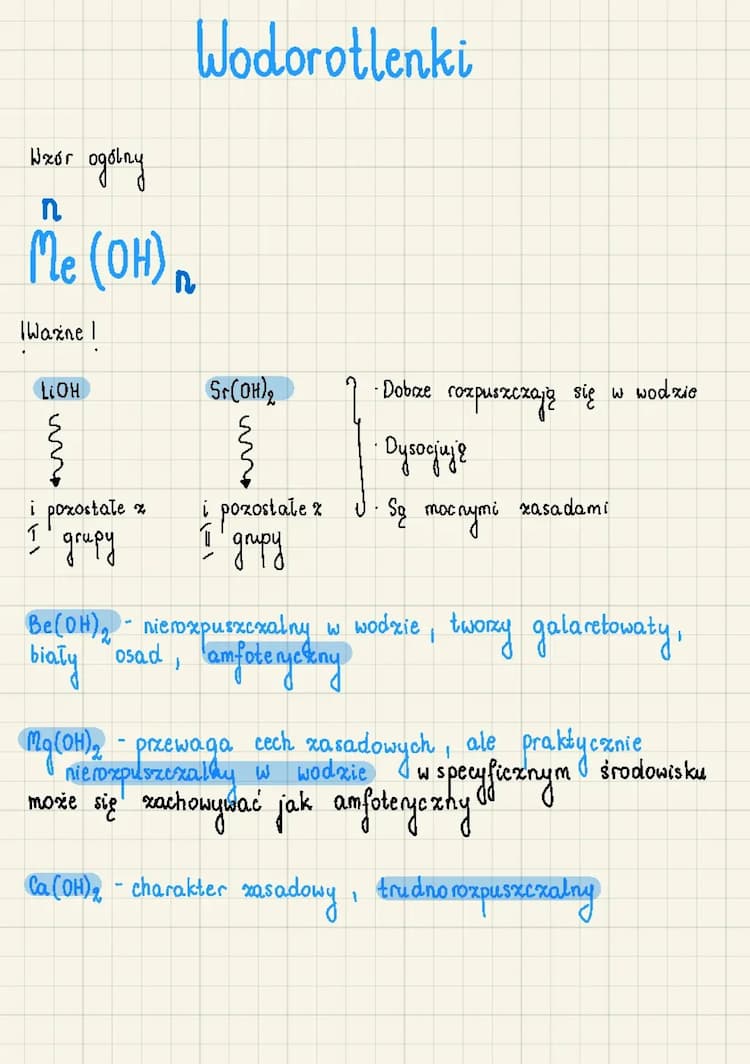 Wodorotlenki
Wzór ogólny
n
Me (OH) n
!Ważne!
LiOH
i pozostałe z
I grupy
Sr(OH)₂
i pozostałe z
II grupy
· Dobrze rozpuszczają się w wodzie
· Dysocjują
· Są mocnymi zasadami
Be(OH)₂ - nierozpuszczalny w wodzie, tworzy galaretowaty,
biały osad, amfoteryczny
Mg(OH)₂ - przewaga cech zasadowych, ale praktycznie
nierozpuszczalny w wodzie w specyficznym środowisku
może się zachowywać jak amfoteryczny
Ca(OH)₂ - charakter zasadowy, trudno rozpuszczalny